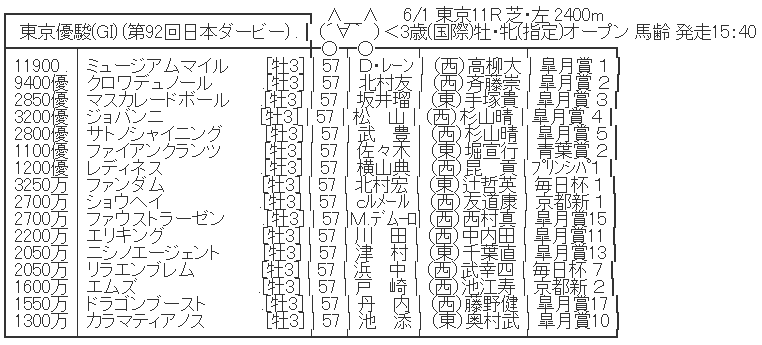 東京優駿(GI) (第92回日本ダービー) . | (´∀`) <3歳(国際)牡・牝(指定)オープン 馬齢 発走15:40
∧＿∧ 6/1 東京11R 芝・左 2400m
11900 . | ミュージアムマイル [牡3] | 57 | D・レーン | (西)高柳大 | 皐月賞 1
9400優 | クロワデュノール .[牡3] | 57 | 北村友 | (西)斉藤崇 | 皐月賞 2
2850優 | マスカレードボール [牡3] | 57 | 坂井瑠 | (東)手塚貴 | 皐月賞 3
3200優 | ジョバンニ [牡3] | 57 | 松 山 | (西)杉山晴 | 皐月賞 4
2800優 | サトノシャイニング [牡3] | 57 | 武 豊 | (西)杉山晴 | 皐月賞 5
1100優 | ファイアンクランツ .[牡3] | 57 | 佐々木 | (東)堀宣行 | 青葉賞 2
1200優 | レディネス .[牡3] | 57 | 横山典 | (西)昆 貢 | プリンシパ1
3250万 | ファンダム .[牡3] | 57 | 北村宏 | (東)辻哲英 | 毎日杯 1
2700万 | ショウヘイ .[牡3] | 57 | cルメール | (西)友道康 | 京都新 1
2700万 | ファウストラーゼン .[牡3] | 57 | M.デムーロ | (西)西村真 | 皐月賞15
2200万 | エリキング .[牡3] | 57 | 川 田 | (西)中内田 | 皐月賞11
2050万 | ニシノエージェント [牡3] | 57 | 津 村 | (東)千葉直 | 皐月賞13
2050万 | リラエンブレム [牡3] | 57 | 浜 中 | (西)武幸四 | 毎日杯 7
1600万 | エムズ .[牡3] | 57 | 戸 崎 | (西)池江寿 | 京都新 2
1550万 | ドラゴンブースト .[牡3] | 57 | 丹 内 | (西)藤野健 | 皐月賞17
1300万 | カラマティアノス [牡3] | 57 | 池 添 | (東)奥村武 | 皐月賞10